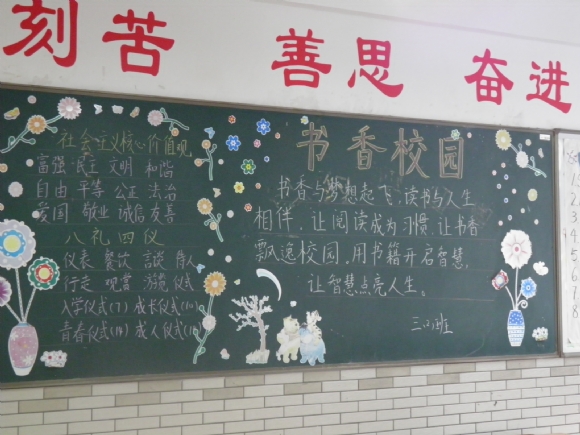 刻苦 善思 奋进
社会主义核心价值观
富强 民主 文明 和谐
自由 平等 公正 法治
爱国 敬业 诚信 友善
八礼四仪
仪表 餐饮 言谈 待人
行走 观赏 游览 仪式
入学仪式(7) 成长仪式(10)
青春仪式(14) 成人仪式(18)
书香校园
书香与梦想起飞,读书与人生
相伴,让阅读成为习惯,让书香
飘逸校园,用书籍开启智慧,
让智慧点亮人生。
班
1
2
3
4
5
6
7
8